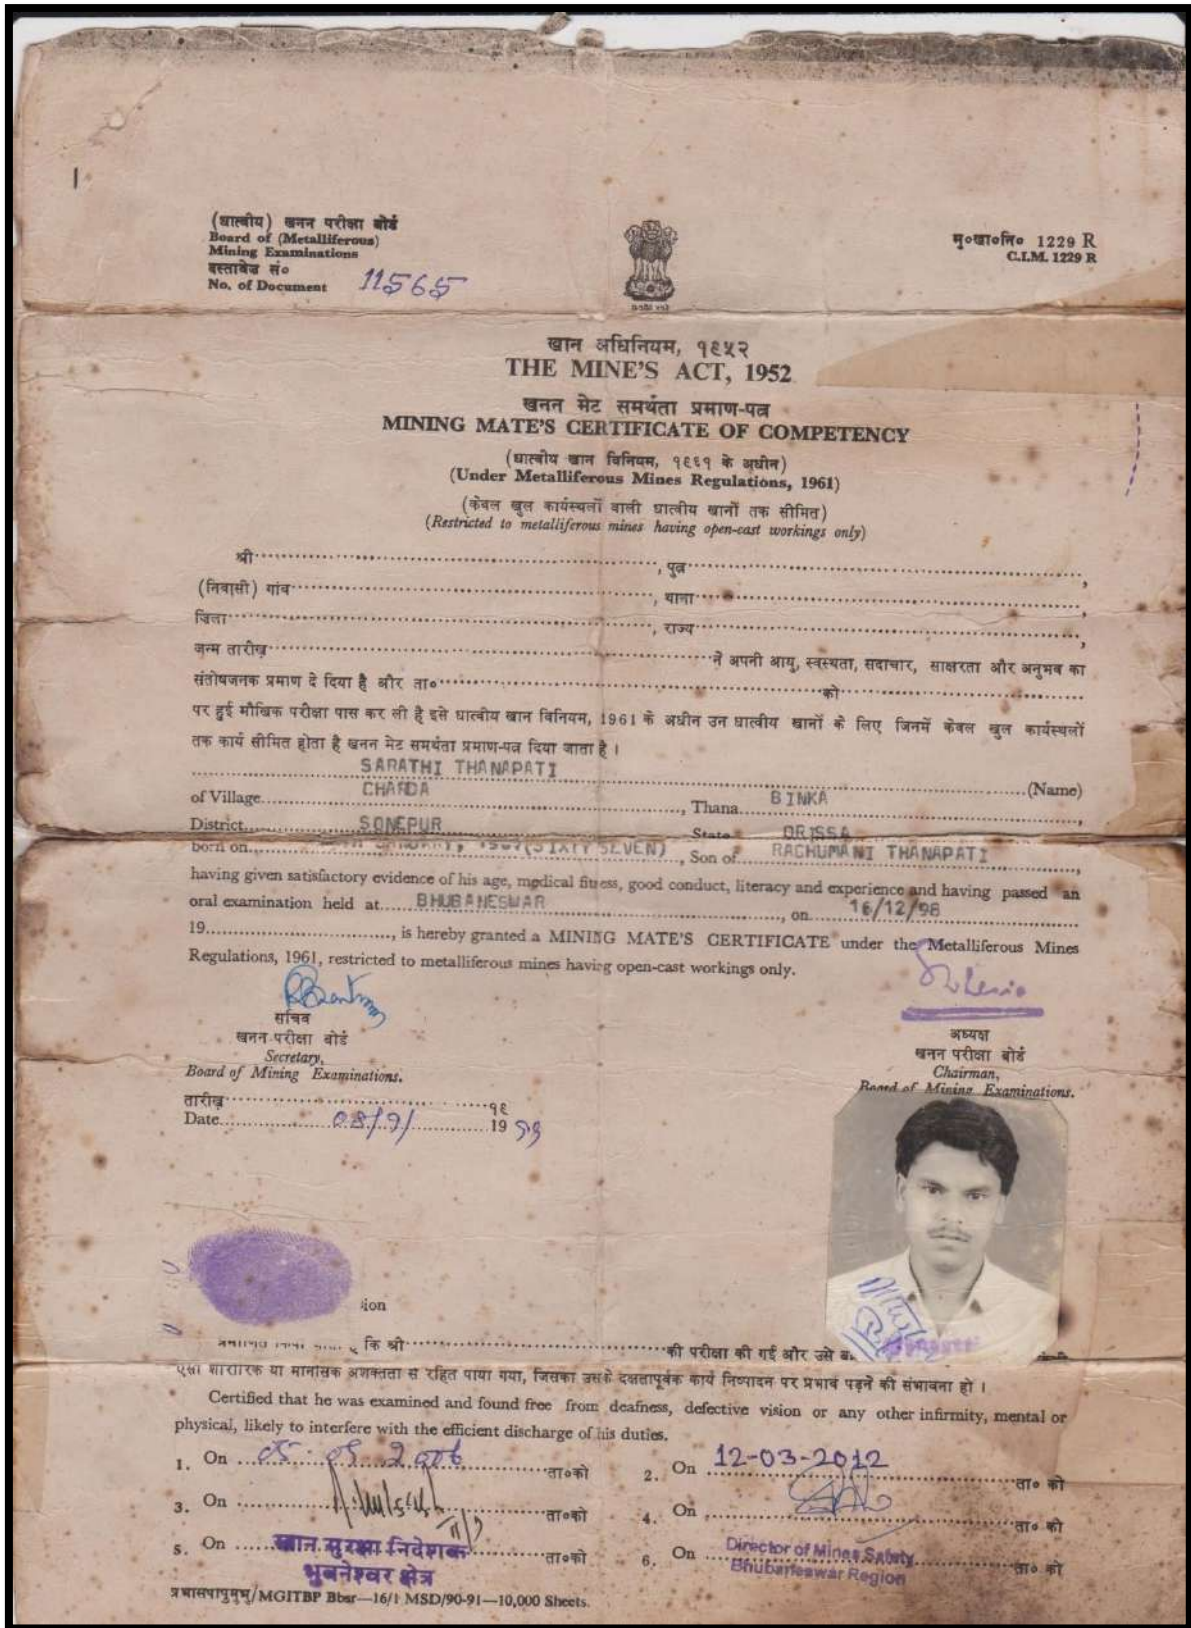 (धात्वीय) खनन परीक्षा बोर्ड
Board of (Metalliferous)
Mining Examinations
दस्तावेज सं०
No. of Document 11565
मु०खा०नि० 1229 R
C.I.M. 1229 R
खान अधिनियम, १९५२
THE MINE'S ACT, 1952
खनन मेट समर्थता प्रमाण-पत्र
MINING MATE'S CERTIFICATE OF COMPETENCY
(धात्वीय खान विनियम, १९६१ के अधीन)
(Under Metalliferous Mines Regulations, 1961)
(केवल खुल कार्यस्थलों वाली धात्वीय खानों तक सीमित)
(Restricted to metalliferous mines having open-cast workings only)
श्री, पुत्र,
(निवासी) गांव, थाना,
जिला, राज्य,
जन्म तारीख ने अपनी आयु, स्वस्थता, सदाचार, साक्षरता और अनुभव का
संतोषजनक प्रमाण दे दिया है और ता० को
पर हुई मौखिक परीक्षा पास कर ली है इसे धात्वीय खान विनियम, 1961 के अधीन उन धात्वीय खानों के लिए जिनमें केवल खुल कार्यस्थलों
तक कार्य सीमित होता है खनन मेट समर्थता प्रमाण-पत्र दिया जाता है ।
SARATHI THANAPATI (Name)
of Village CHARDA, Thana BINKA
District SONEPUR State ORISSA,
born on (SIXTY SEVEN), Son of RAGHUMANI THANAPATI,
having given satisfactory evidence of his age, medical fitness, good conduct, literacy and experience and having passed an
oral examination held at BHUBANESWAR, on 16/12/98
19, is hereby granted a MINING MATE'S CERTIFICATE under the Metalliferous Mines
Regulations, 1961, restricted to metalliferous mines having open-cast workings only.
सचिव
खनन परीक्षा बोर्ड
Secretary,
Board of Mining Examinations.
अध्यक्ष
खनन परीक्षा बोर्ड
Chairman,
Board of Mining Examinations.
तारीख १९
Date 08/9/ 19 99
कि श्री की परीक्षा की गई और उसे
एसी शारीरिक या मानसिक अशक्तता से रहित पाया गया, जिसका उसके दक्षतापूर्वक कार्य निष्पादन पर प्रभाव पड़ने की संभावना हो ।
Certified that he was examined and found free from deafness, defective vision or any other infirmity, mental or
physical, likely to interfere with the efficient discharge of his duties.
1. On 05 2006 ता०को
2. On 12-03-2012 ता० को
3. On ता०को
4. On ता० को
5. On ता०को
खान सुरक्षा निदेशक
भुवनेश्वर क्षेत्र
6. On ता० को
Director of Mines Safety
Bhubaneswar Region
MGITBP Bbsr—16/1 MSD/90-91—10,000 Sheets.